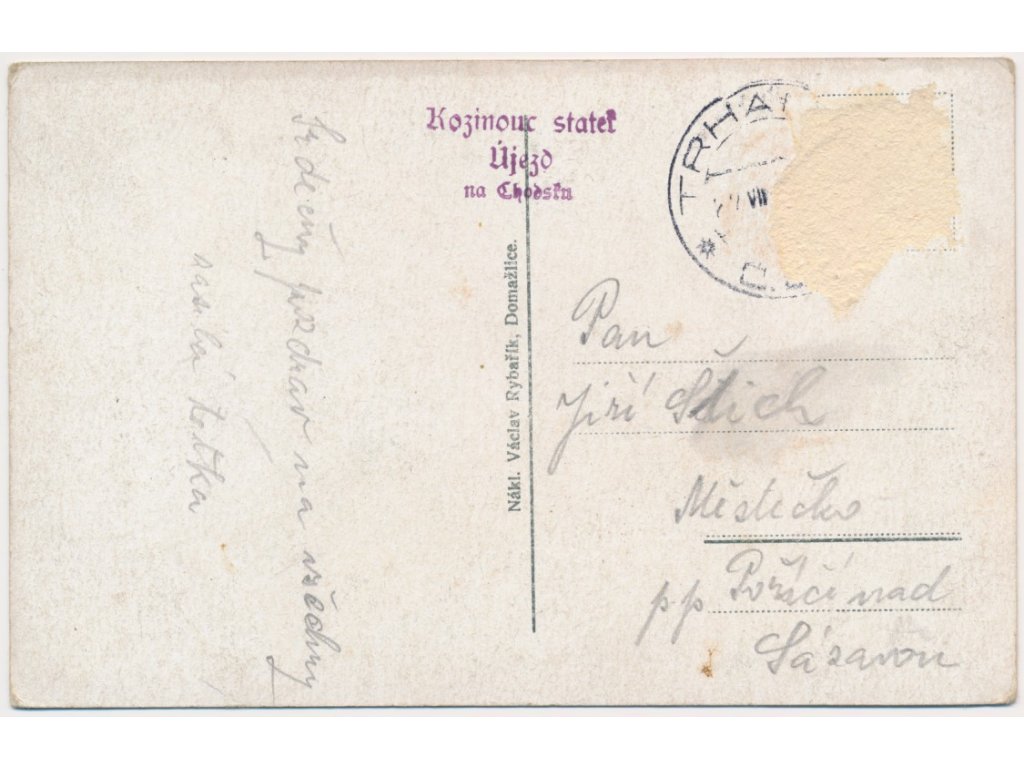 Kozinouc statek
Újezd
na Chodsku
TRHA
VII
Č.
Srdečný pozdrav na všechny
zasílá tetka
Nákl. Václav Rybařík, Domažlice.
Pan
Jiří Štich
Městečko
pp Poříčí nad
Sázavou